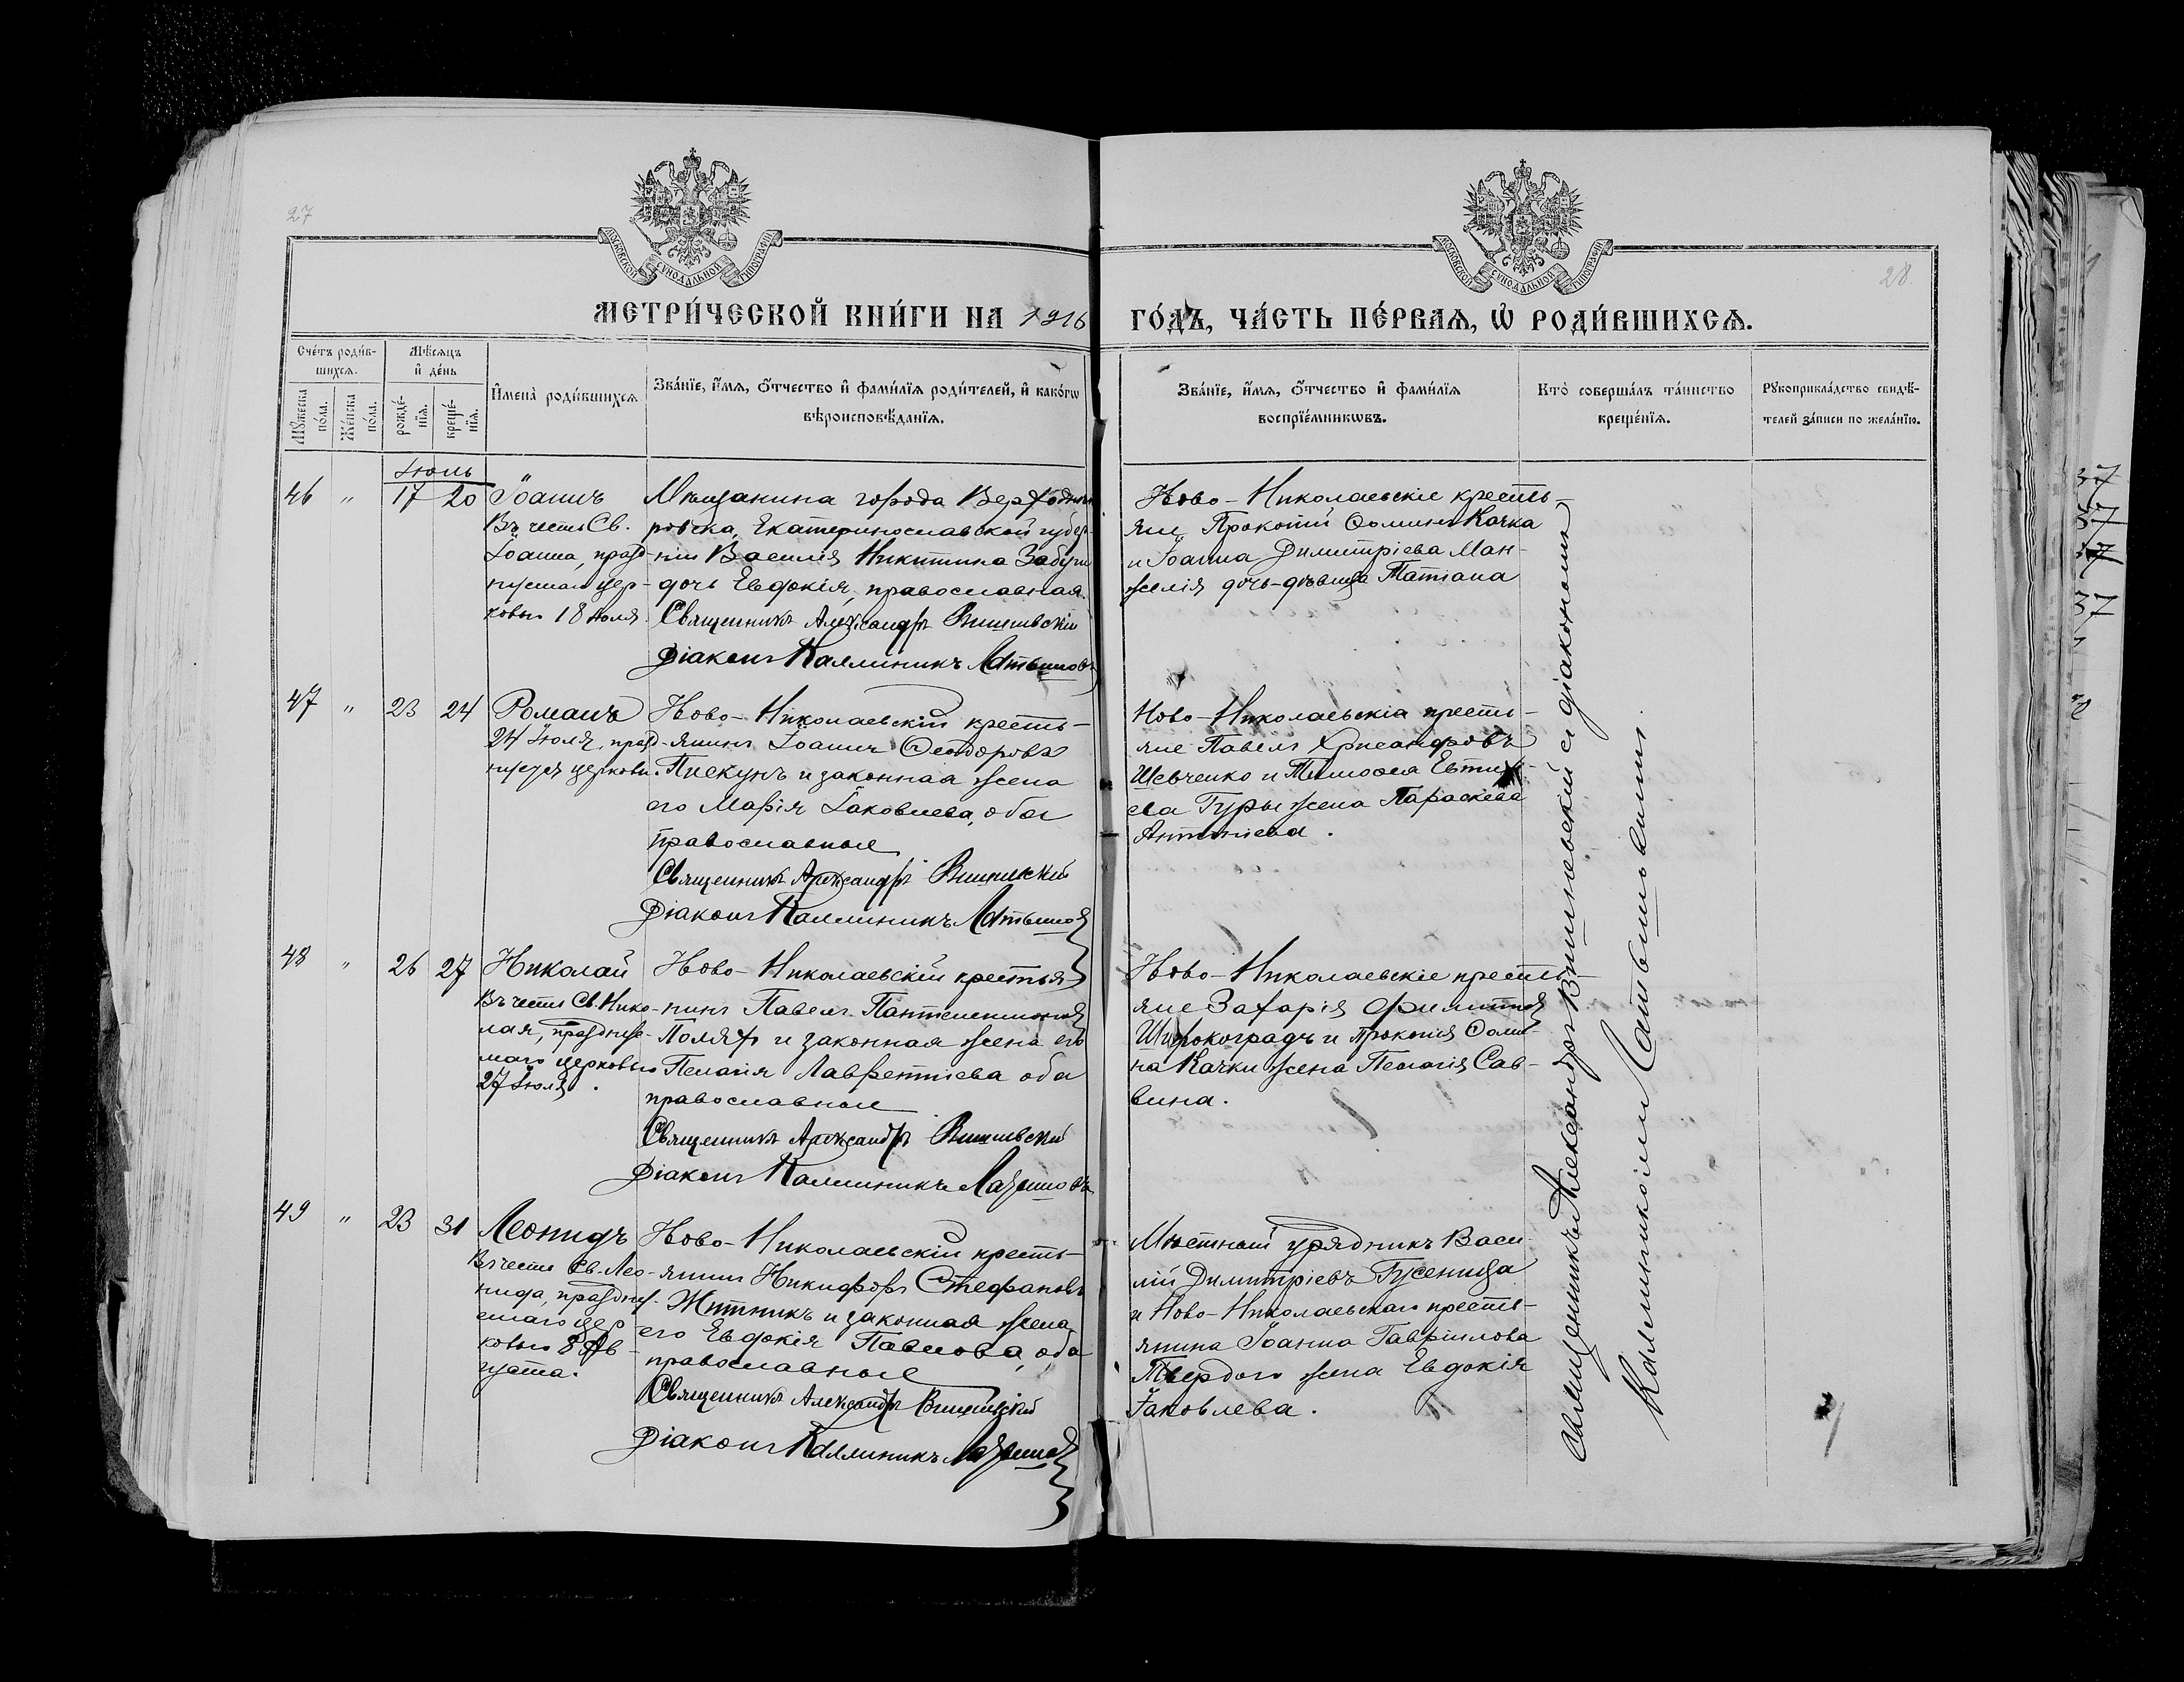 27
28
МОСКОВСКОЙ СУНОДАЛЬНОЙ ТИПОГРАФІИ
МОСКОВСКОЙ СУНОДАЛЬНОЙ ТИПОГРАФІИ
МЕТРИ́ЧЕСКОЙ КНИ́ГИ НА 1916 ГО́ДЪ, ЧА́СТЬ ПЕ́РВАЯ, Ѡ РОДИ́ВШИХСЯ.
Сче́тъ роди́в-
шихся.
Мѣ́сяцъ
и҆ де́нь
Мꙋ́жеска по́ла.
Же́нска по́ла.
рожде́-
нїя.
креще́-
нїя.
И҆мена̀ роди́вшихся
Зва́нїе, и҆́мя, ѻ҆́тчество и҆ фами́лїя роди́телей, и҆ како́гѡ
вѣроисповѣ́данїя.
Зва́нїе, и҆́мя, ѻ҆́тчество и҆ фами́лїя
воспрїе́мникѡвъ.
Кто̀ соверша́лъ та́инство
креще́нїя.
Рꙋкоприкла́дство свидѣ́-
телей за́писи по жела́нїю.
Іюль
46 " 17 20 Іоаннъ
Въ честь Св.
Іоанна, празд-
нуемаго цер-
ковью 18 Іюля.
Мѣщанина города Верходнѣп-
ровска, Екатеринославской губер-
ніи Василія Никитина
дочь Евдокія, православная.
Священникъ Александръ Вишневскій
Діаконъ Каллиникъ Латышовъ
Ново-Николаевскіе кресть-
яне Прокопій Ѳоминъ Качка
и Іоанна Димитріева Ман-
желія дочь-дѣвица Татіана
47 " 23 24 Романъ
24 Іюля, празд-
нуется церковью.
Ново-Николаевскій кресть-
янинъ Іоаннъ Ѳеодоровъ
Пискунъ и законная жена
его Марія Іаковлева, оба
православные
Священникъ Александръ Вишневскій
Діаконъ Каллиникъ Латышовъ
Ново-Николаевскіе кресть-
яне Павелъ Хрисанфовъ
Шевченко и Тимоѳея Евтихі-
ева Гуры жена Параскева
Антоніева.
48 " 26 27 Николай
Въ честь Св. Нико-
лая, празднуе-
маго церковью
27 Іюля.
Ново-Николаевскій крестья-
нинъ Павелъ Пантелеимоновъ
Поляхъ и законная жена его
Пелагія Лаврентіева оба
православные
Священникъ Александръ Вишневскій
Діаконъ Каллиникъ Латышовъ
Ново-Николаевскіе кресть-
яне Захарія Филипповъ
Широкоградъ и Прокопія Ѳоми-
на Качки жена Пелагія Сав-
вина.
49 " 23 31 Леонидъ
Въ честь Св. Лео-
нида, праздну-
емаго цер
ковью 8 Ав-
густа.
Ново-Николаевскій кресть-
янинъ Никифоръ Стефановъ
Житникъ и законная жена
его Евдокія Павлова, оба
православные
Священникъ Александръ Вишневскій
Діаконъ Каллиникъ Латышовъ
Мѣстный урядникъ Васи-
лій Димитріевъ Гусеница
и Ново-Николаевскаго кресть-
янина Іоанна Гавріилова
Твердого жена Евдокія
Іаковлева.
Священникъ Александръ Вишневскій съ діакономъ
Каллиникомъ Латышовымъ.
37
37
37
37